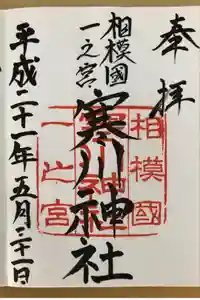 奉拝
相模國
一之宮
寒川神社
相模國
寒川神社
一之宮
平成二十一年五月三十一日